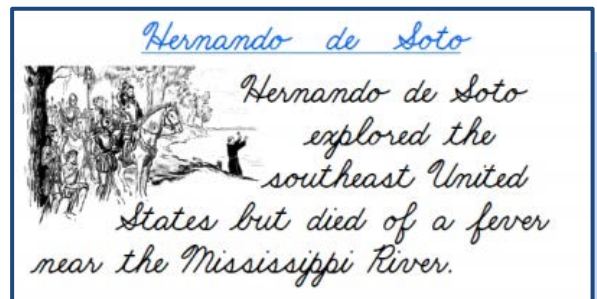 Hernando de Soto
Hernando de Soto
explored the
southeast United
States but died of a fever
near the Mississippi River.